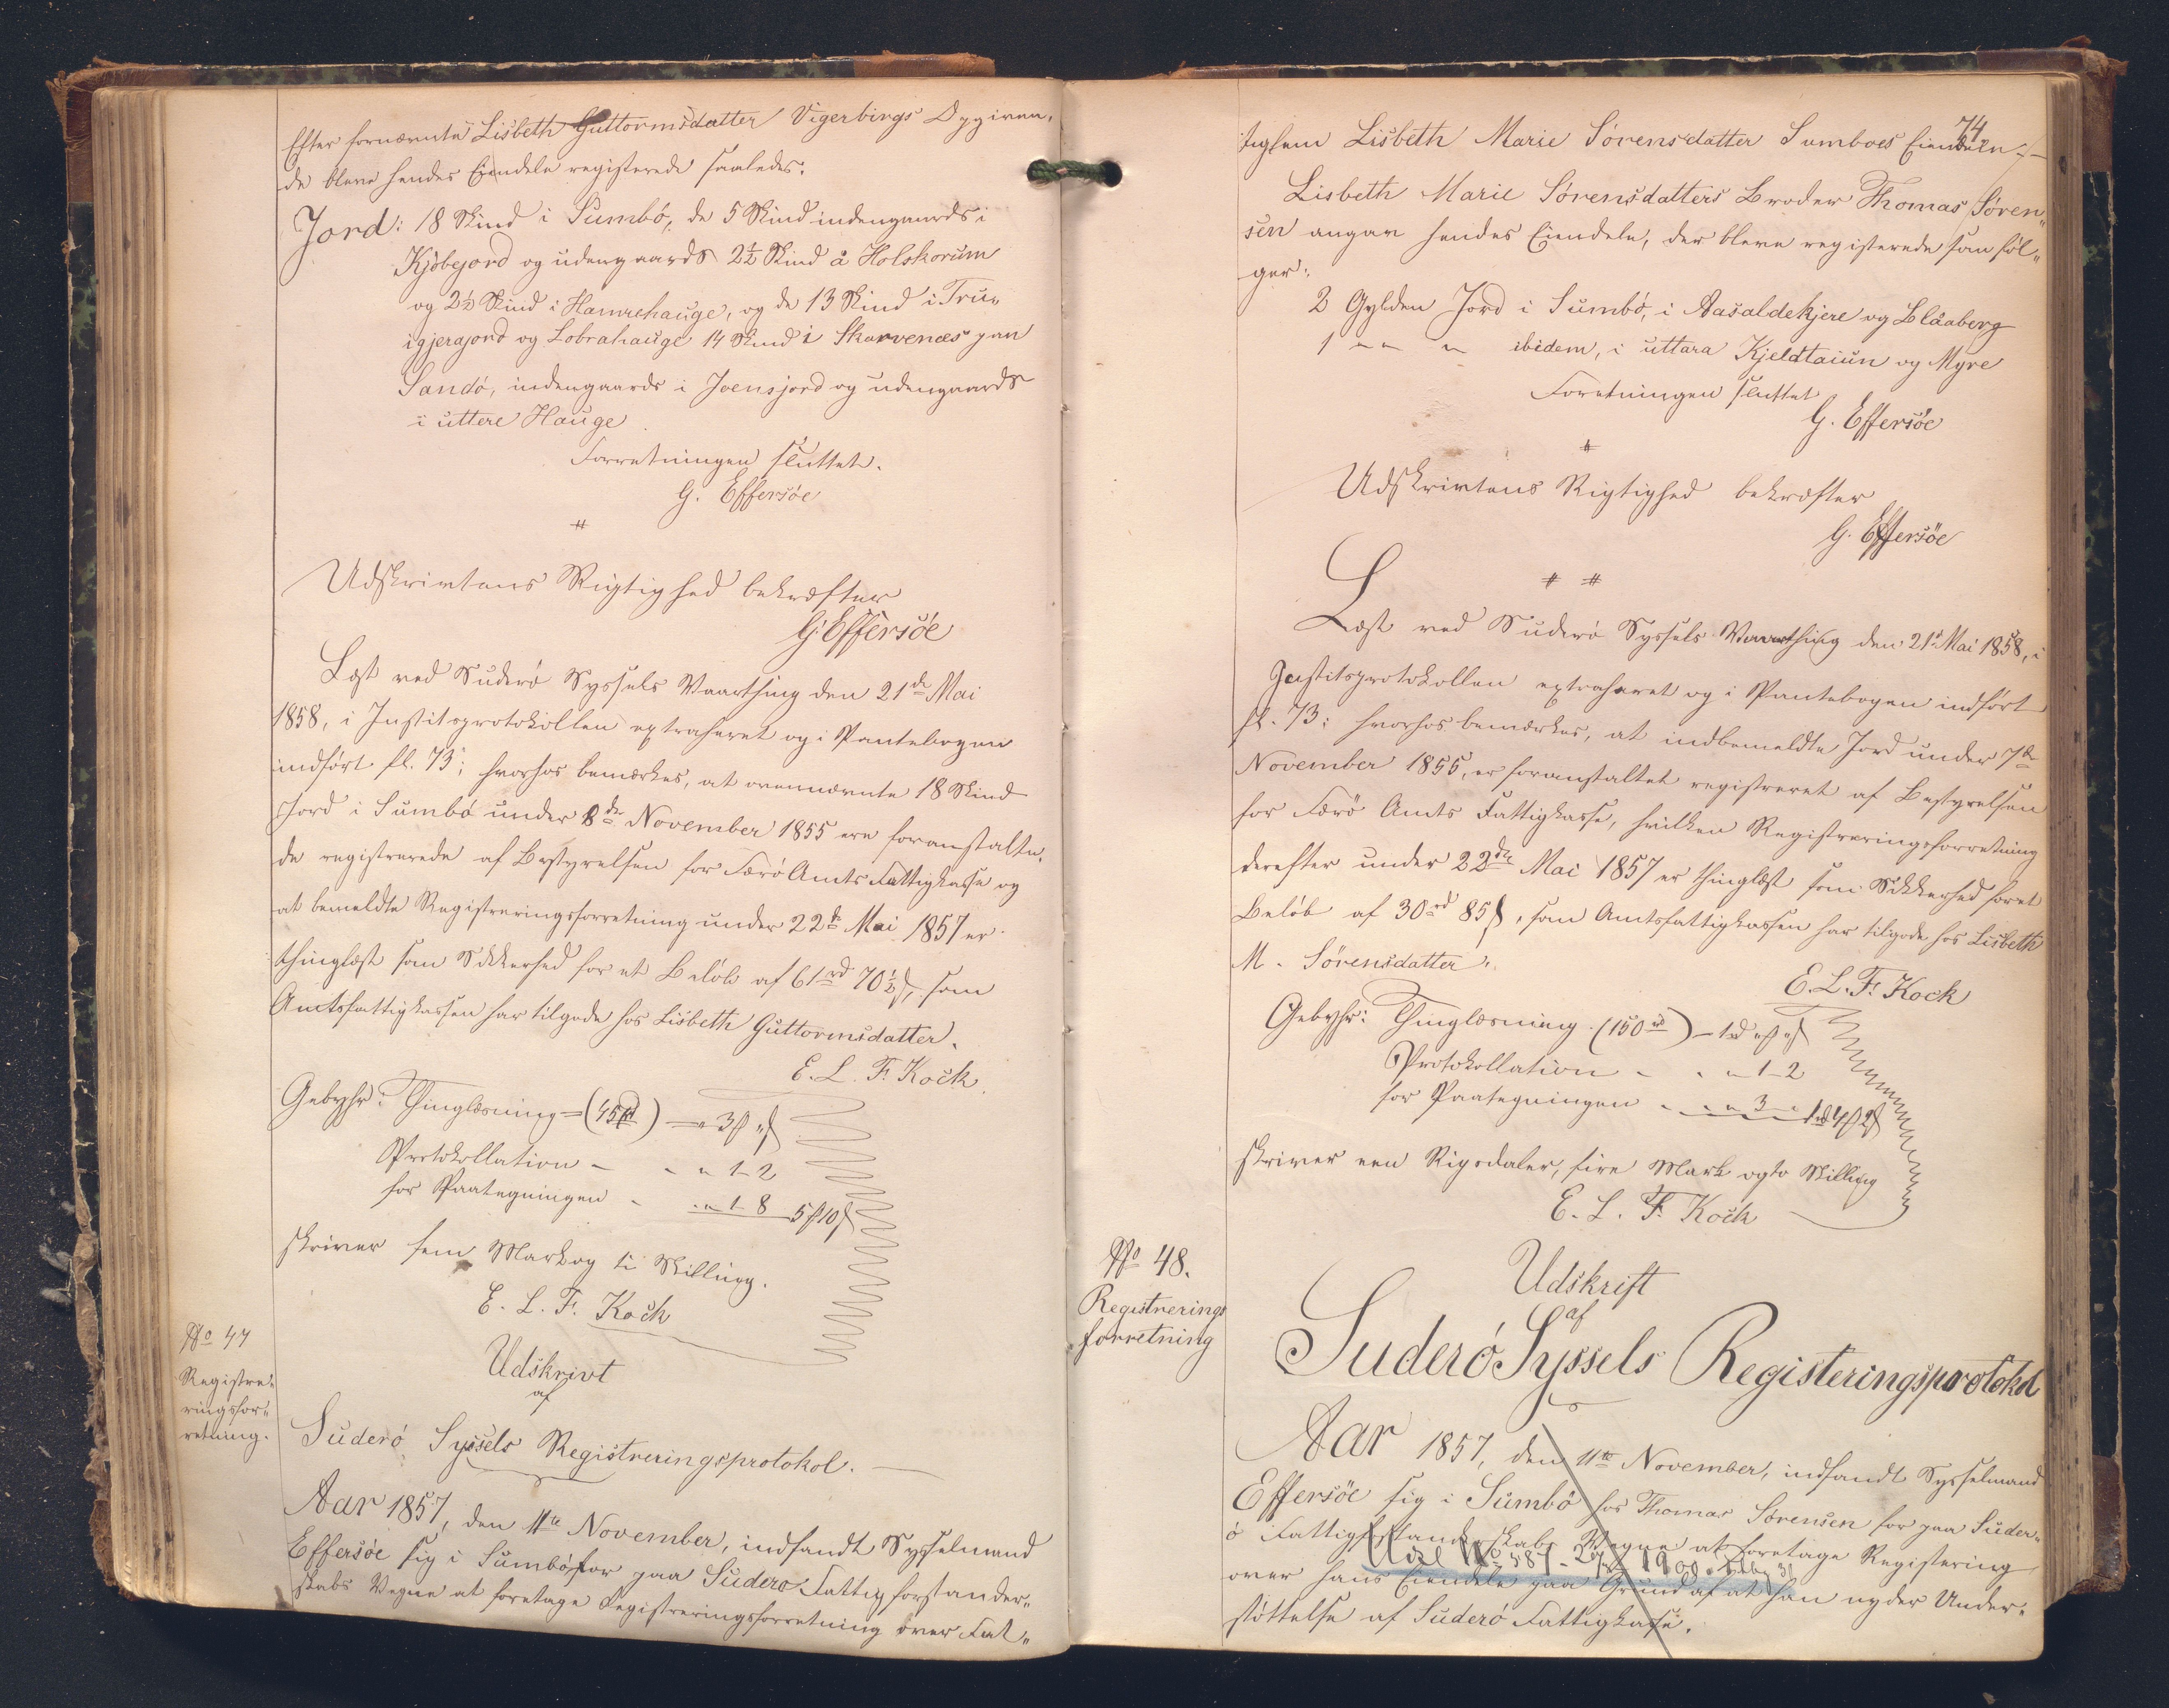 Efter fornævnte Lisbeth Guttormsdatter Vigerbirgs Opgiven,
de bleve hendes Eiendele registerede saaledes:
Jord: 18 Skind i Sumbö, de 5 Skind indengaards i
Kjöbejord og udengaards 2½ Skind å Holskorum
og 2½ Skind i Hamrehauge, og de 13 Skind i Tru„
igjerajord og Lobrahauge 14 Skind i Skarvenæs paa
Sandö, indengaards i Joensjord og udengaards
i uttere Hauge
Forretningen sluttet.
G. Effersöe
#
Udskrivtens Rigtighed bekræfter
G. Effersöe
Læst ved Suderö Syssels Vaarthing den 21de Mai
1858, i Justitsprotokollen extraheret og i Pantebogen
indfört fl. 73; hvorhos bemærkes, at ovennævnte 18 Skind
Jord i Sumbö under 8de November 1855 ere foranstalte,
de registrerede af Bestyrelsen for Færö Amts Fattigkasse og
at bemeldte Registreringsforretning under 22de Mai 1857 er
thinglæst som Sikkerhed for et Belöb af 61rd 70½ß, som
Amtsfattigkassen har tilgode hos Lisbeth Guttormsdatter.
E. L. F. Kock.
Gebyhr: Thinglæsning = (45rd) — „ 3ß „ß
Protokollation – „ „ 1–2
for Paategningen – „ „ 1–8 5ß10ß
skriver fem Mark og ti Skilling.
E. L. F. Kock
No 47
Registre„
ringsfor„
retning.
Udskrivt
af
Suderö Syssels Registreringsprotokol.
Aar 1857, den 11te November, indfandt Sysselmand
Effersöe sig i Sumbö, for paa Suderö Fattigforstander„
skabs Vegne at foretage Registreringsforretning over Fat„
74
tiglem Lisbeth Marie Sörensdatter Sumboes Eiendele
Lisbeth Marie Sörensdatters Broder Thomas Sören„
sen angav hendes Eiendele, der bleve registerede som föl„
ger:
2 Gylden Jord i Sumbö, i Aasaldekjere og Blåaberg
1 „ „ „ ibidem, i uttara Kjeldtaiun og Myre
Forretningen sluttet
G. Effersöe
#
Udskrivtens Rigtighed bekræfter
G. Effersöe
# #
Læst ved Suderö Syssels Vaarthing den 21de Mai 1858, i
Justitsprotokollen extraheret og i Pantebogen indfört
fl. 73; hvorhos bemærkes, at indbemeldte Jord under 7de
November 1855, er foranstaltet registreret af Bestyrelsen
for Færö Amts Fattigkasse, hvilken Registreringsforretning
derefter under 22de Mai 1857 er thinglæst som Sikkerhed for et
Belöb af 30rd 85ß, som Amtsfattigkassen har tilgode hos Lisbeth
M. Sörensdatter.
E. L. F. Kock
Gebyhr: Thinglæsning (150rd) – 1rd „ß „ß
Protokollation – „ „ 1–2
for Paategningen – „ „ 3 – 1rd 4ß 2ß
skriver een Rigsdaler, fire Mark og to Skilling
E. L. F. Kock
No 48.
Registrerings
forretning
Udskrift
af
Suderö Syssels Registeringsprotokol
Aar 1857, den 11te November, indfandt Sysselmand
Effersöe sig i Sumbö hos Thomas Sörensen for paa Suder„
ö Fattigforstanderskabs Vegne at foretage Registering
over hans Eiendele paa Grund af at han nyder Under„
stöttelse af Suderö Fattigkasse.